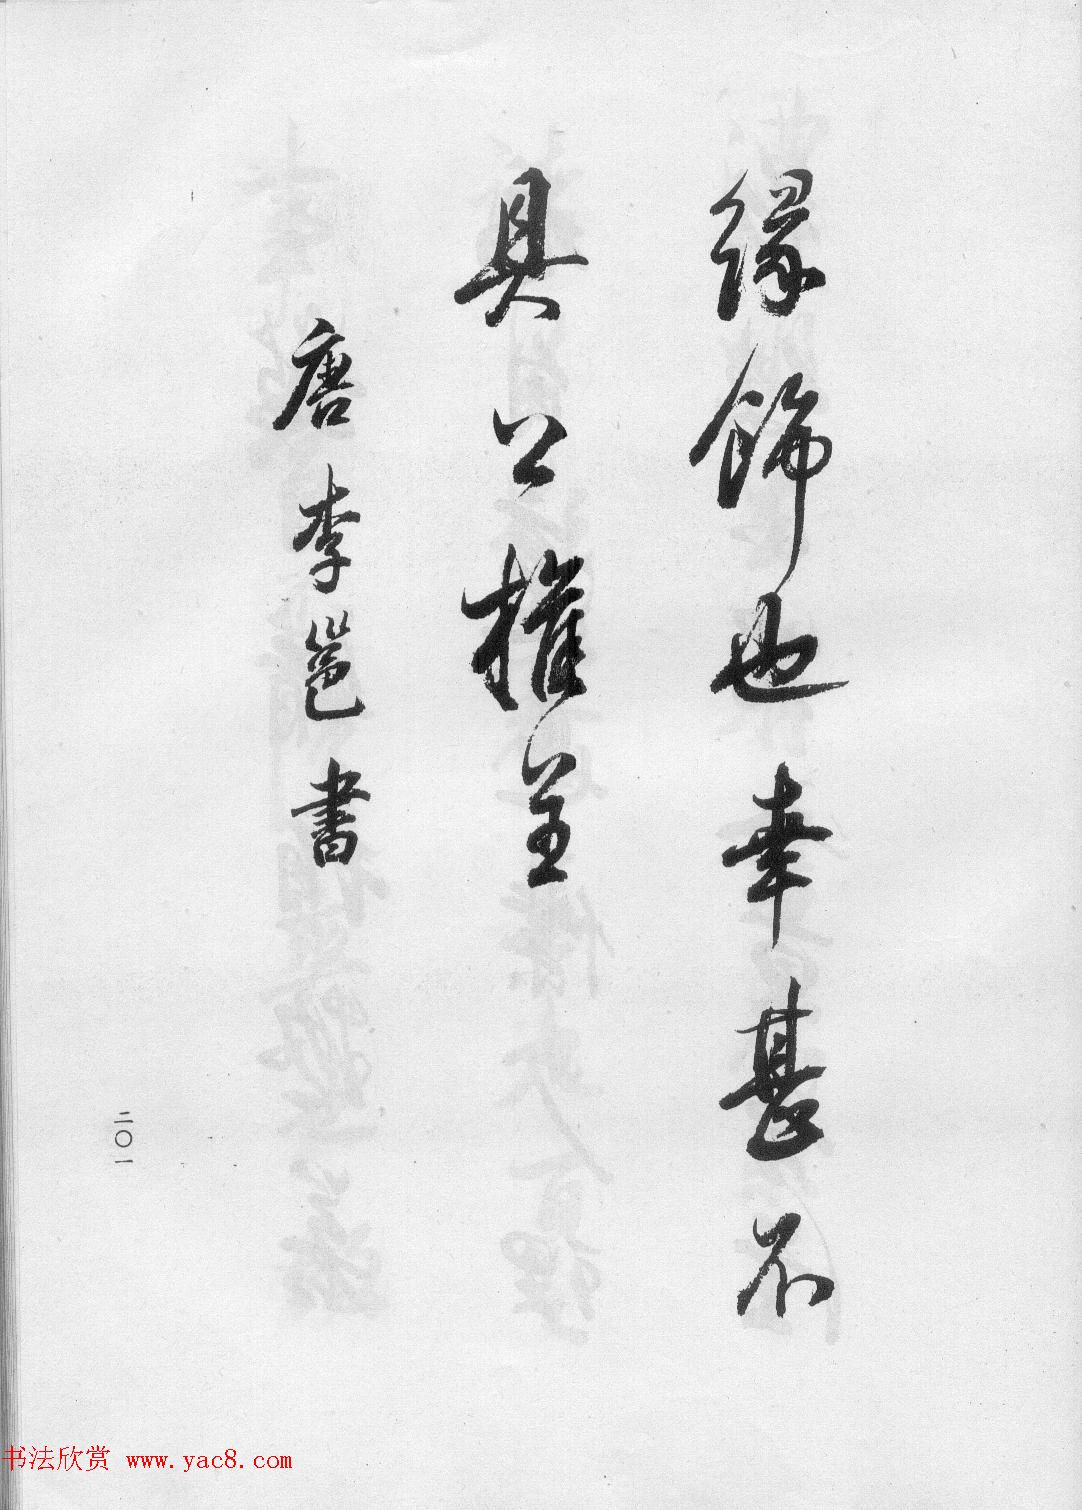 緣飾也幸甚不
具公權呈
唐李邕書
二〇一
书法欣赏 www.yac8.com